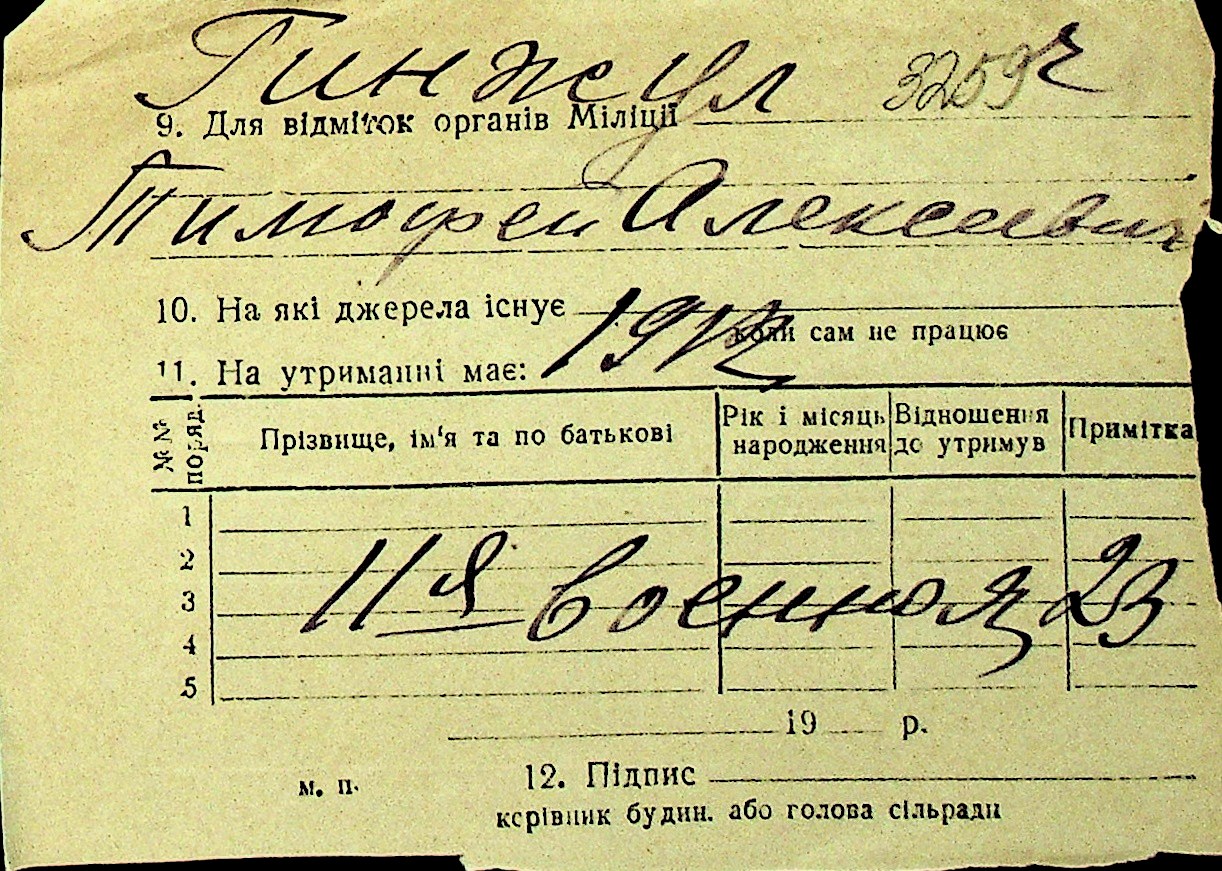 Гинжул 3259 г
9. Для відміток органів Міліції
Тимофей Алексеевич
10. На які джерела існує
коли сам не працює
1912
11. На утриманні має:
№№ поряд.
Прізвище, ім'я та по батькові
Рік і місяць народження
Відношення до утримув
Примітка
1
2
11 я военная 23
3
4
5
19 р.
м. п.
12. Підпис
керівник будин. або голова сільради